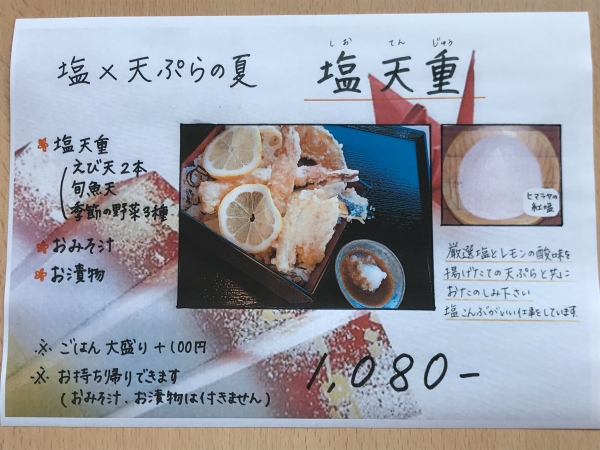 塩×天ぷらの夏
しお てん じゅう
塩天重
塩天重
えび天2本
旬魚天
季節の野菜3種
おみそ汁
お漬物
ヒマラヤの
紅塩
厳選塩とレモンの酸味を
揚げたての天ぷらと共に
おたのしみ下さい
塩こんぶがいい仕事をしています
※ ごはん大盛り+100円
※ お持ち帰りできます
(おみそ汁、お漬物は付きません)
1,080-